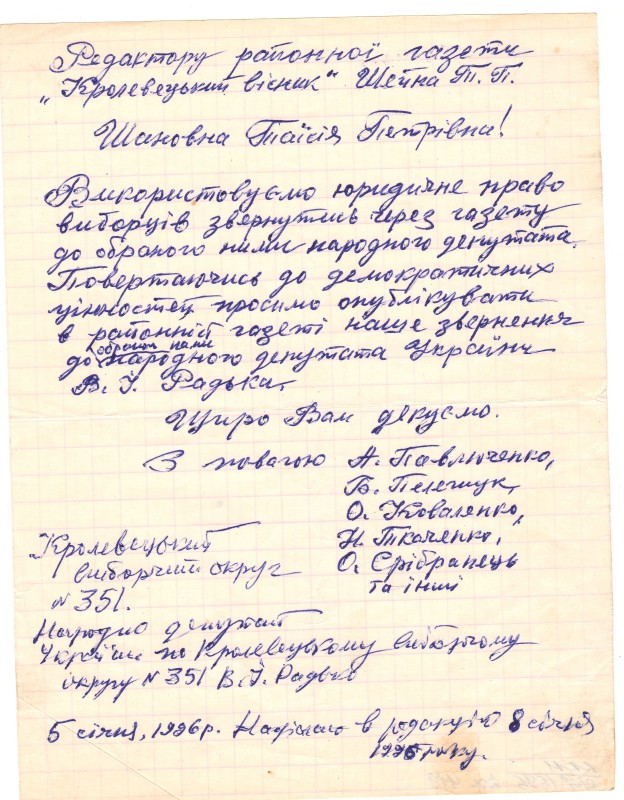 Редактору районної газети
„Кролевецький вісник" Шейна Т. П.
Шановна Таїсія Петрівна!
Використовуємо юридичне право
виборців звернутись через газету
до обраного ними народного депутата.
Повертаючись до демократичних
цінностей просимо опублікувати
в районній газеті наше звернення
обраного нами
до народного депутата України
В. І. Радька.
Щиро Вам дякуємо.
З повагою А. Павлюченко,
Б. Пелешук,
О. Коваленко,
Н. Ткаченко,
О. Срібранець
та інші
Кролевецький
виборчий округ
№ 351.
Народно депутат
України по Кролевецькому виборчому
округу № 351 В. І. Радько
5 січня, 1996 р. Надіслано в редакцію 8 січня
1996 року.